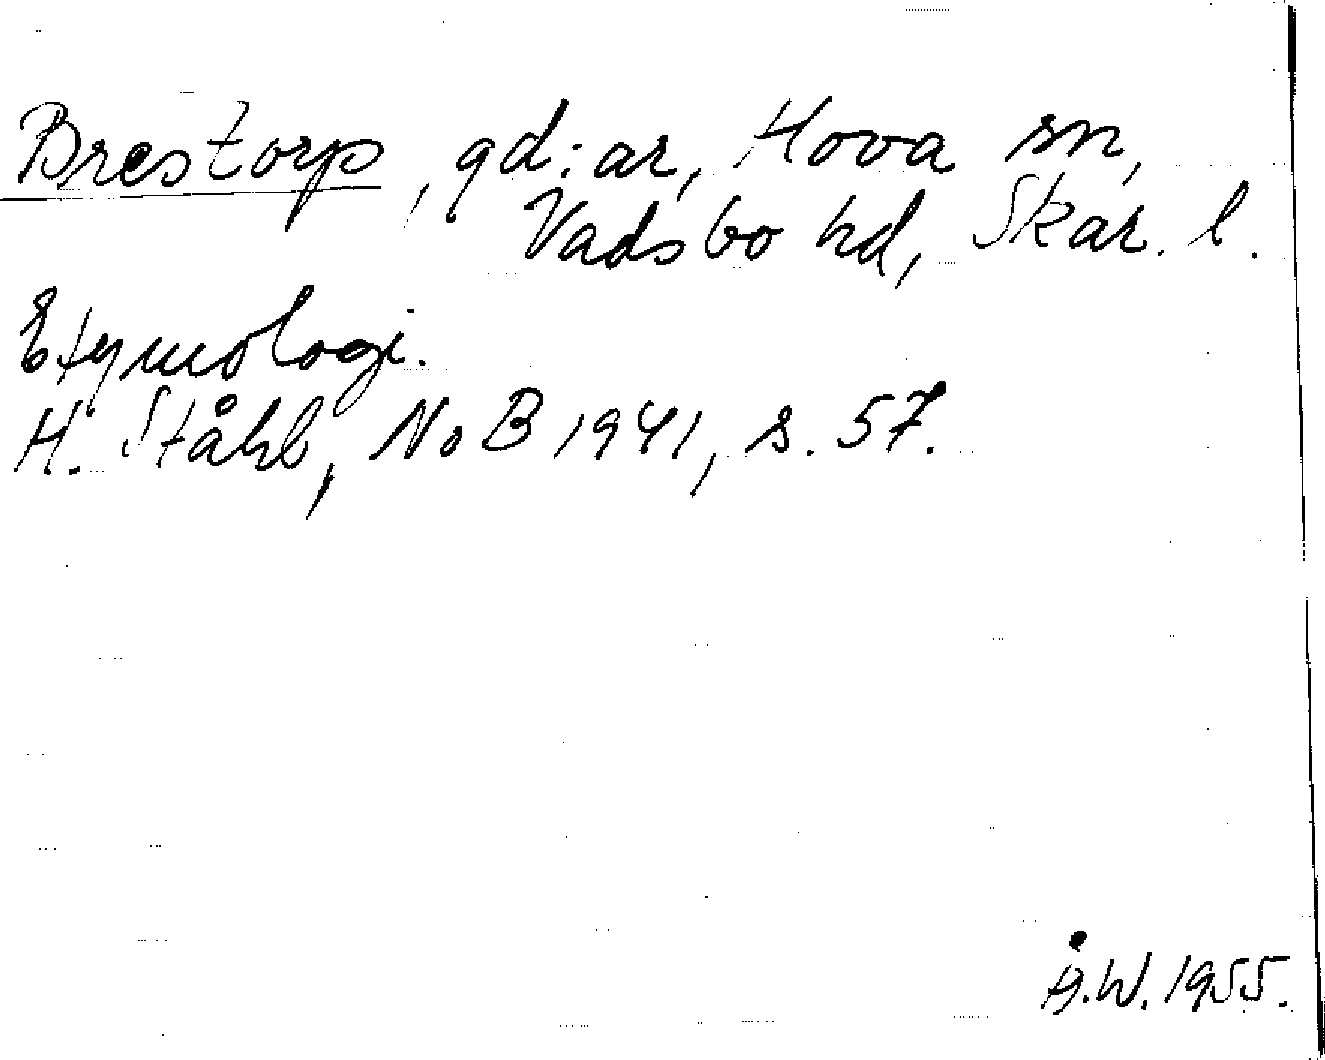 Brestorp, gd:ar, Hova sn,
Vadsbo hd, Skar. l.
Etymologi.
H. Ståhl, NoB 1941, s. 57.
Å.W. 1955.